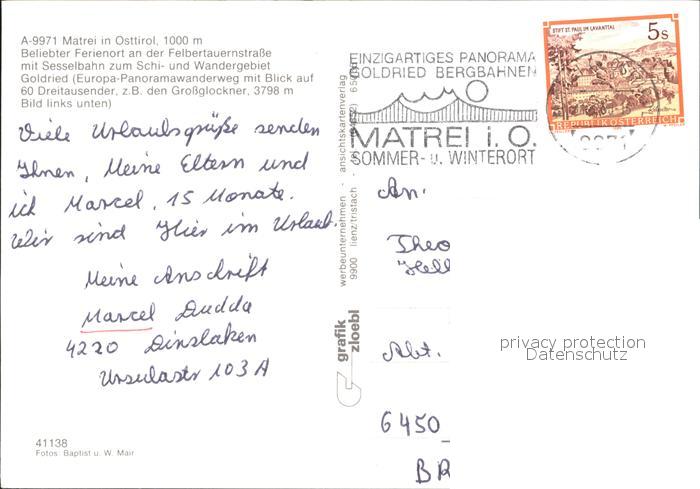 A-9971 Matrei in Osttirol, 1000 m
Beliebter Ferienort an der Felbertauernstraße
mit Sesselbahn zum Schi- und Wandergebiet
Goldried (Europa-Panoramawanderweg mit Blick auf
60 Dreitausender, z.B. den Großglockner, 3798 m
Bild links unten)
Viele Urlaubsgrüße senden
Ihnen, Meine Eltern und
ich Marcel, 15 Monate.
Wir sind Hier im Urlaub.
Meine Anschrift
Marcel Dudda
4220 Dinslaken
Ursulastr 103A
41138
Fotos: Baptist u. W. Mair
werbeunternehmen - ansichtskartenverlag
9900 lienz/tristach
grafik
zloebl
EINZIGARTIGES PANORAMA
GOLDRIED BERGBAHNEN
MATREI i. O.
SOMMER- u. WINTERORT
STIFT ST. PAUL IM LAVANTTAL
5 S
REPUBLIK ÖSTERREICH
9971
An.
Theo
Hell
Abt.
6450
BR
privacy protection
Datenschutz